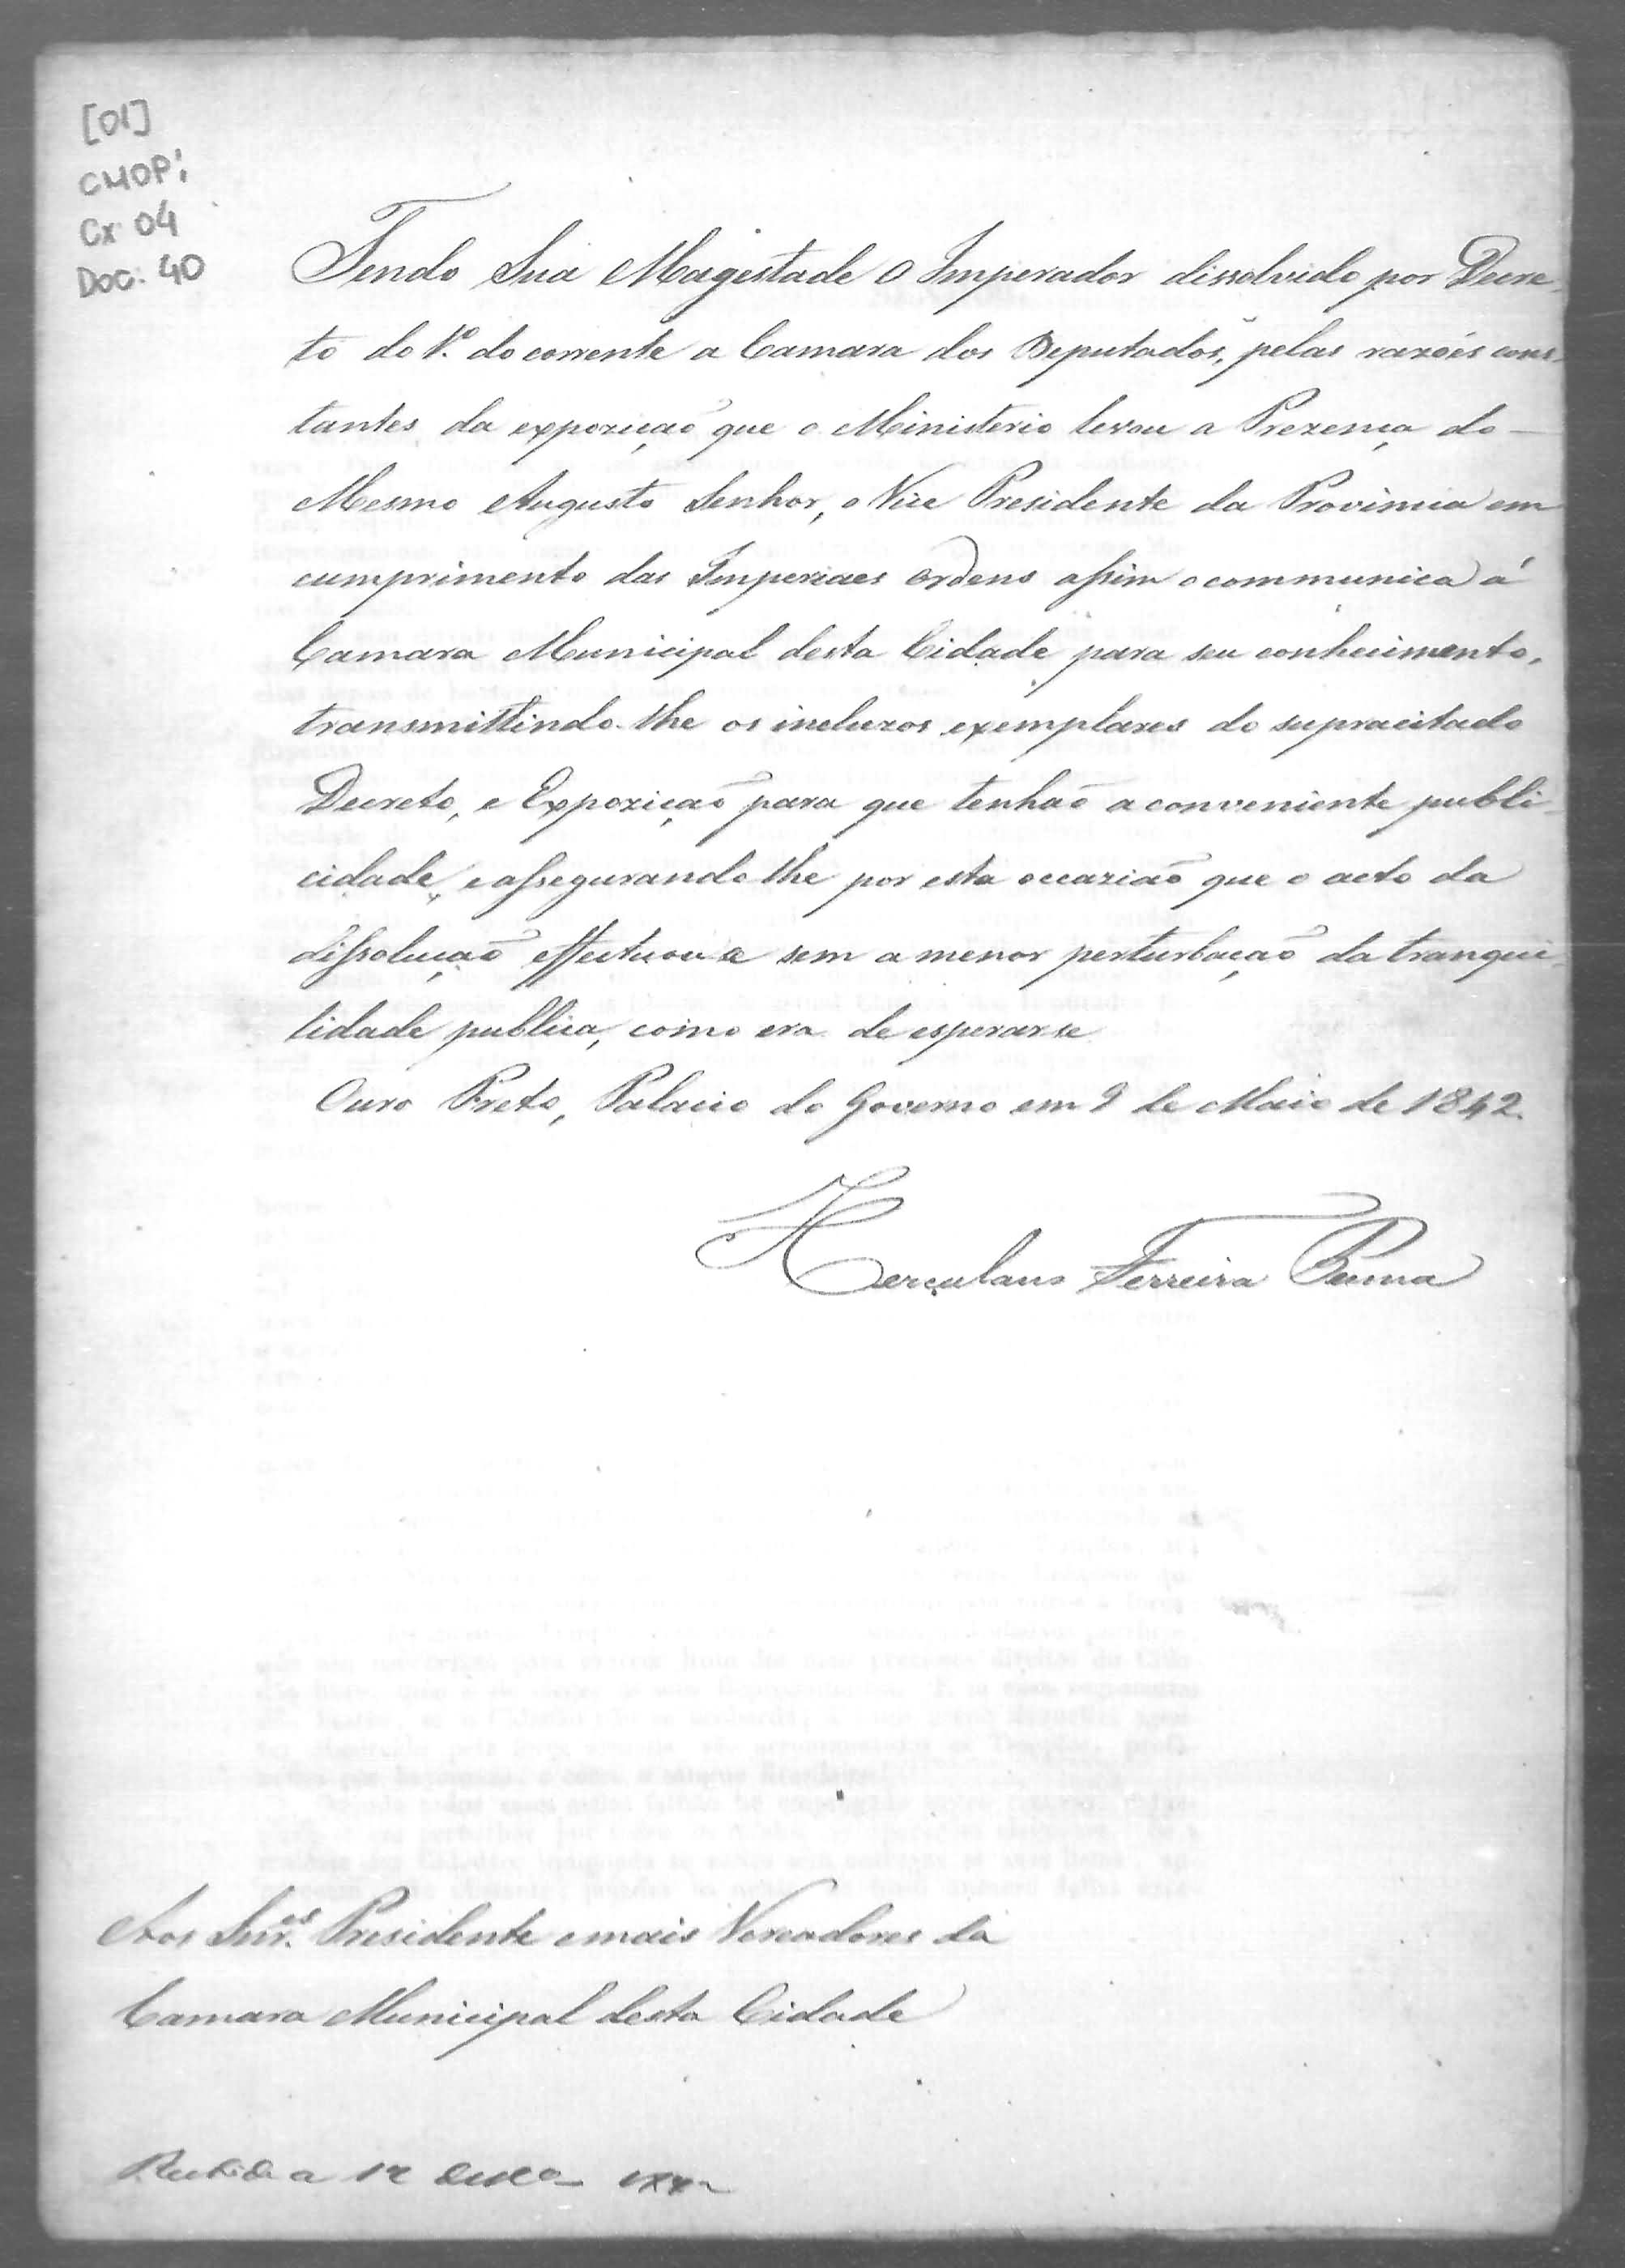 [01]
CMOP:
Cx 04
Doc. 40
Tendo Sua Magestade O Imperador dissolvido por Decre-
to do 1º. do corrente a Camara dos Deputados, pelas razões cons-
tantes da expozição que o Ministerio levou a Prezença do
Mesmo Augusto Senhor, o Vice Presidente da Provincia em
cumprimento das Imperiaes Ordens assim o communica á
Camara Municipal desta Cidade para seu conhecimento,
transmittindo-lhe os incluzos exemplares do supracitado
Decreto, e Expozição para que tenhão a conveniente publi-
cidade, e assegurando lhe por esta occazião que o acto da
dissolução effectuou se sem a menor perturbação da tranqui-
lidade publica, como era de esperar se
Ouro Preto, Palacio do Governo em 9 de Maio de 1842.
Herculano Ferreira Penna
Aos Snr.es Presidente e mais Vereadores da
Camara Municipal desta Cidade